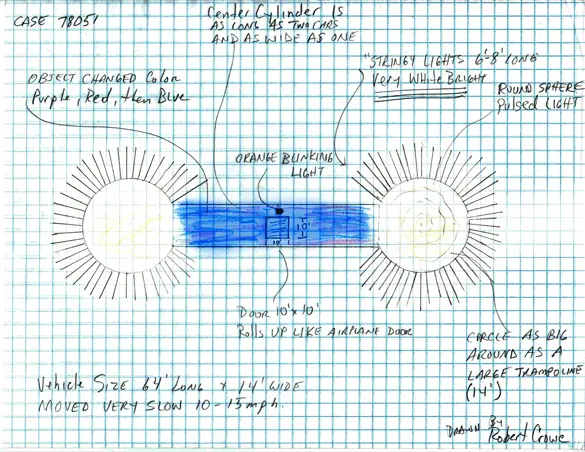 CASE 78051
Center Cylinder Is
AS LONG AS TWO CARS
AND AS WIDE AS ONE
"STRINGY LIGHTS 6'-8' LONG
Very White BRIGHT
OBJECT CHANGED Color
Purple, Red, then Blue
ROUND SPHERE
Pulsed LIGHT
ORANGE BLINKING
LIGHT
10'
10'
DOOR 10' x 10'
Rolls UP LIKE AIRPLANE DOOR
CIRCLE AS BIG
AROUND AS A
LARGE TRAMPOLINE
(14')
Vehicle Size 64' LONG x 14' WIDE
MOVED VERY SLOW 10-15 mph.
DRAWN By
Robert Crowe